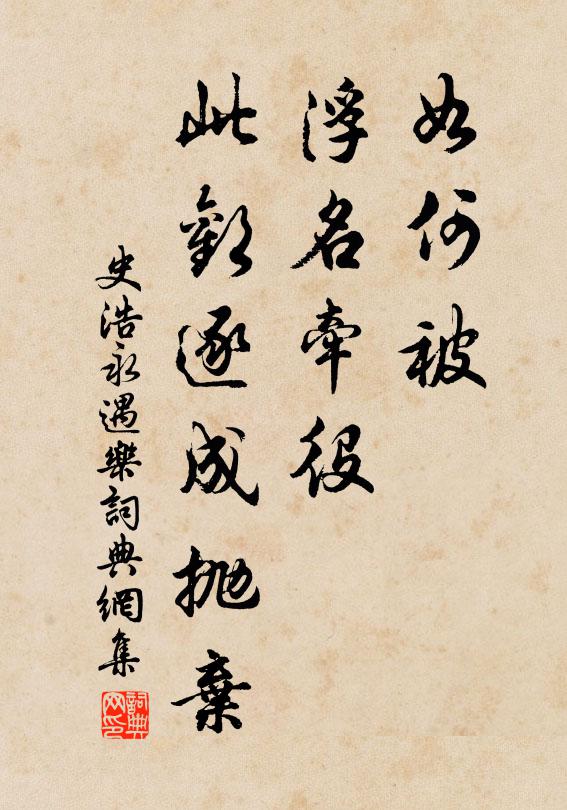 如何被
浮名牽役
此歡逐成抛棄
史浩永遇樂詞典網集
詞典
网印